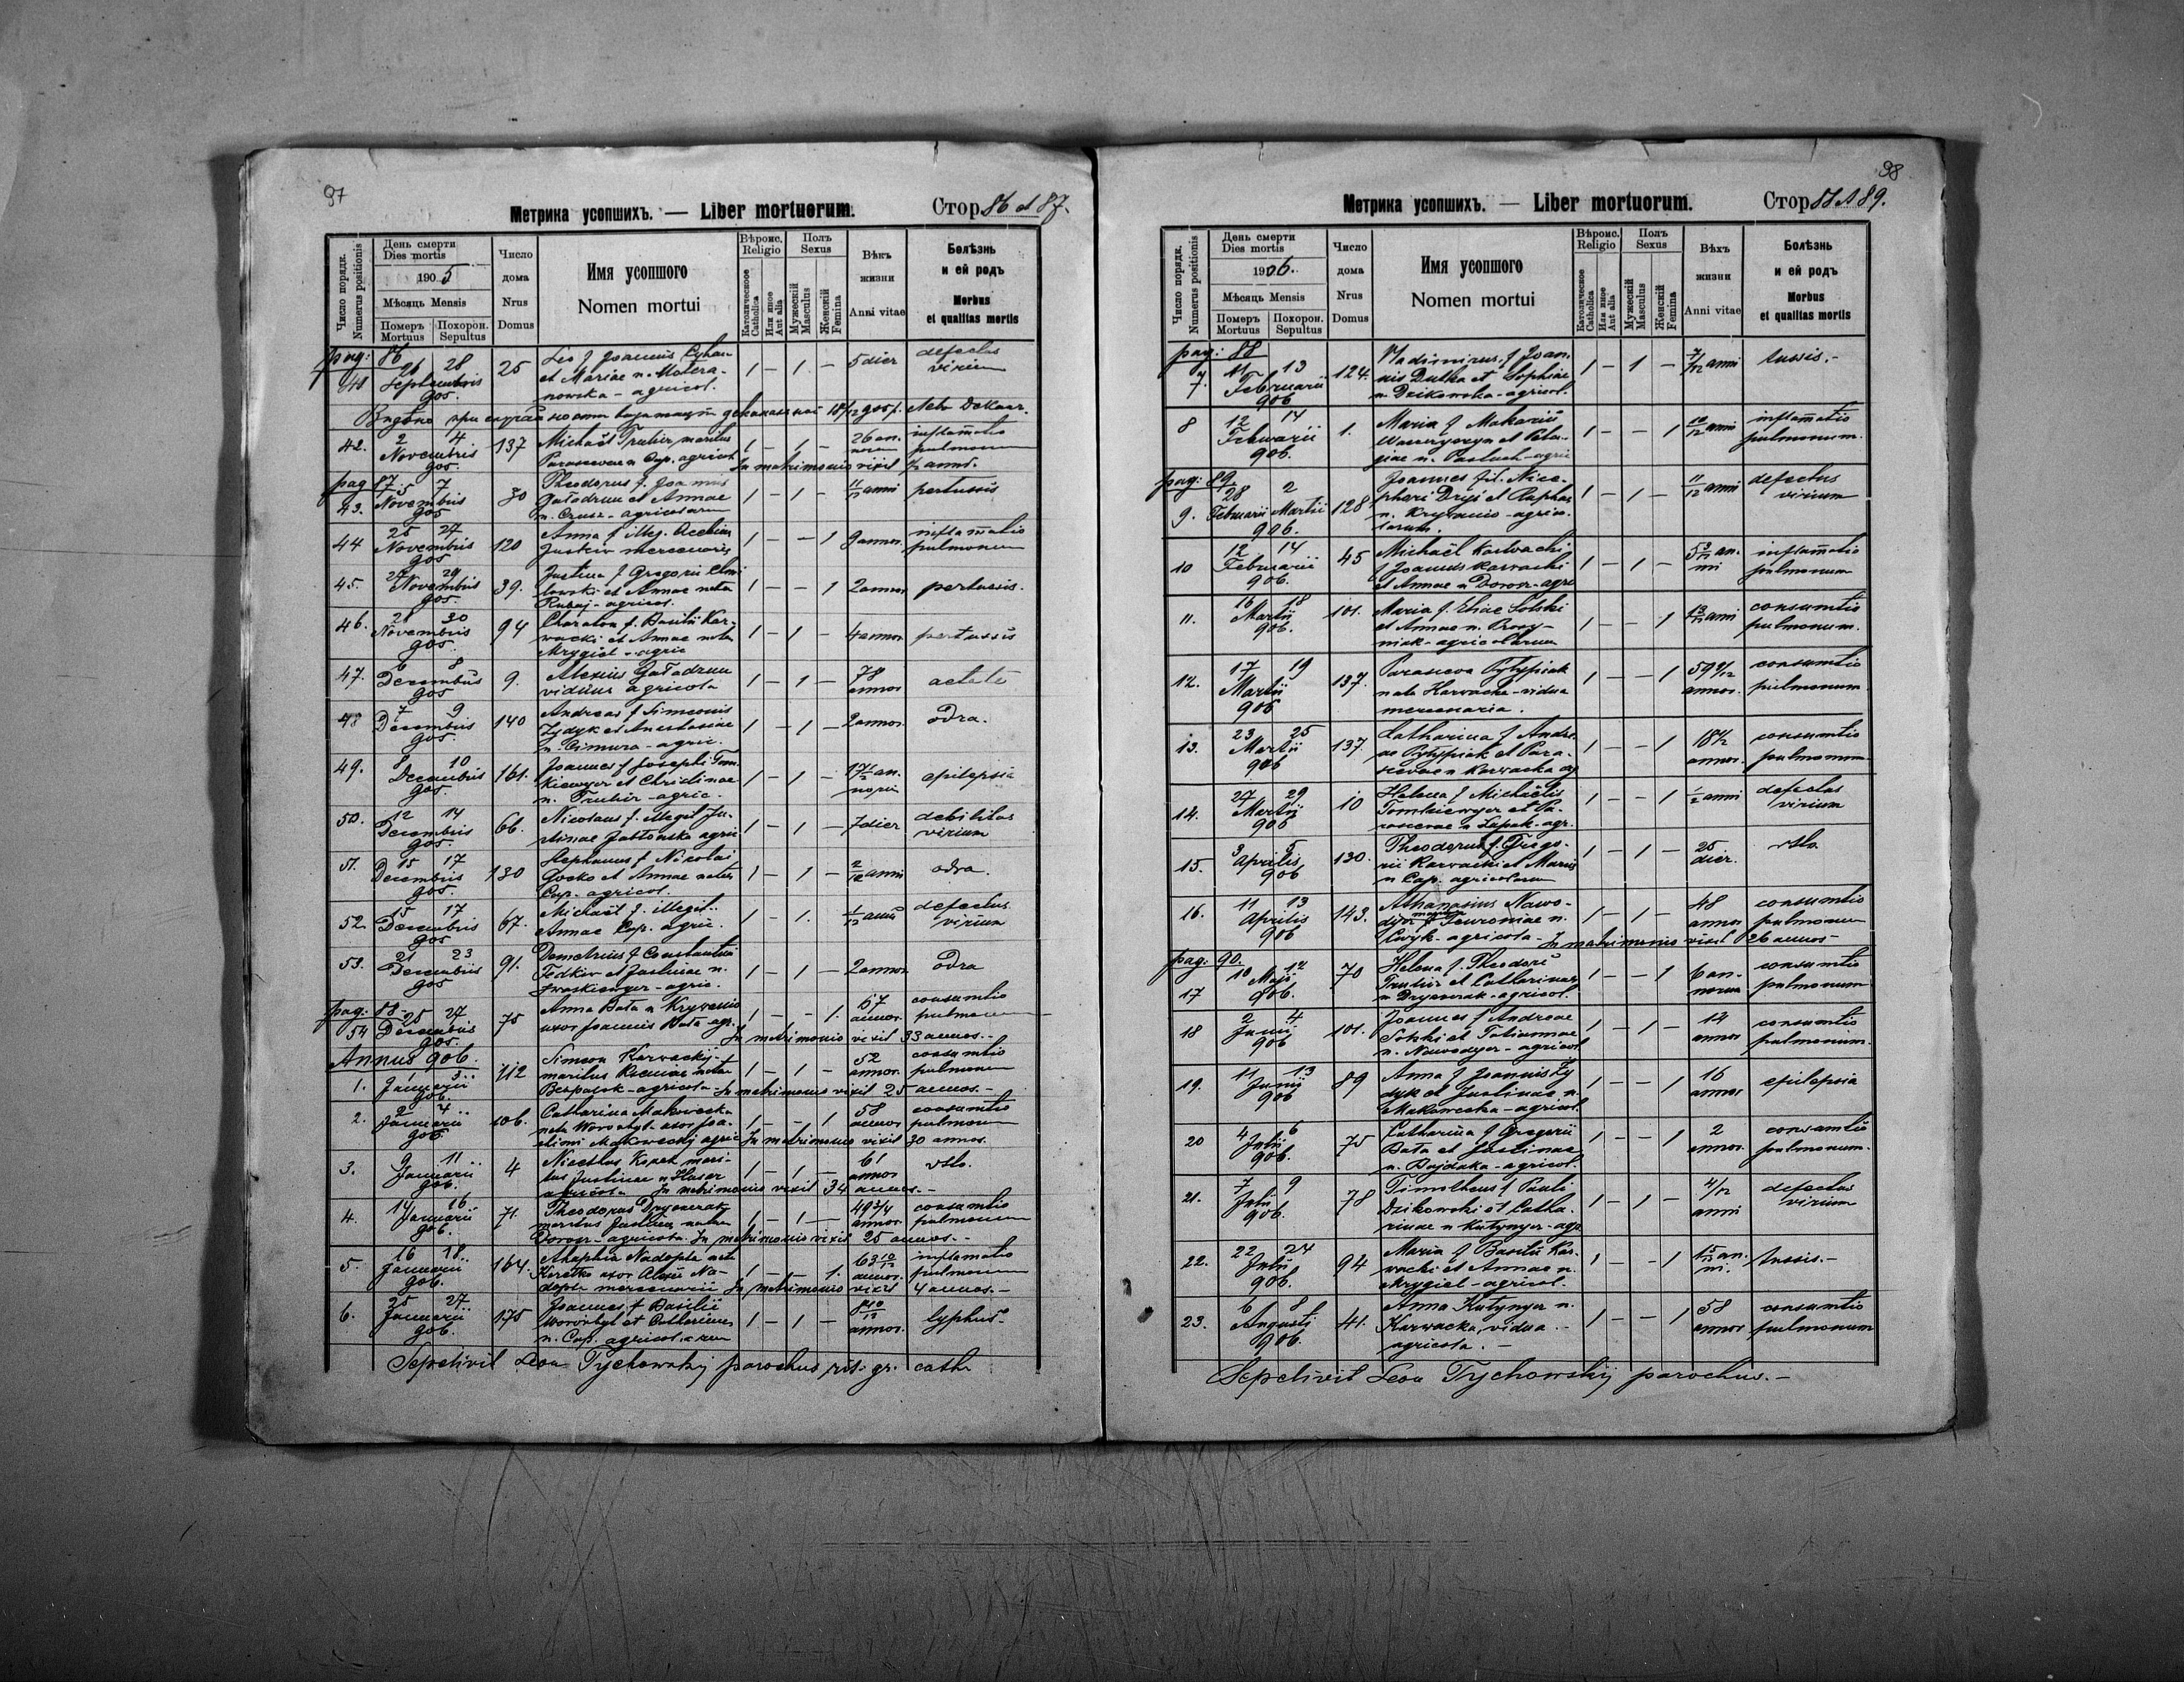 97
Метрика усопшихъ. — Liber mortuorum.
Стор 86 et 87.
Число порядк.
Numerus positionis
День смерти
Dies mortis
1905
Мѣсяць Mensis
Померъ
Mortuus
Похорон.
Sepultus
Число
дома
Nrus
Domus
Имя усопшого
Nomen mortui
Вѣроис.
Religio
Католическое
Catholica
Или иное
Aut alia
Полъ
Sexus
Мужескій
Masculus
Женскій
Femina
Вѣкъ
жизни
Anni vitae
Болѣзнь
и ей родъ
Morbus
et qualitas mortis
pag: 86
41 26 28 Septembris 905. 25 Leo f Joannis
et Mariae n. Matera-
nowska - agricol. 1 - 1 - 5 dier defectus
virium
42. 2 4 Novembris 905. 137 Michaël Trubir, maritus
Parascevae n Cap. agricol. 1 - 1 - 26 an-
norum inflamatio
pulmonum
In matrimonio vixit ½ anni.
pag 87.
43. 5 7 Novembris 905 30 Theodorus f. Joannis
Gaładrun et Annae
agricolarum 1 - 1 - 11/12 anni pertussis
44 25 27 Novembris 905 120 Anna f illeg.
mercenaria 1 - - 1 9 annor. inflamatio
pulmonum
45. 27 29 Novembris 905. 39. Justina f Gregorii
et Annae nata
agricol. 1 - - 1 2 annor pertussis.
46. 28 30 Novembris 905. 94 Chariton f. Basilii Kar-
wacki et Annae nata
Mrygiel - agric 1 - 1 - 4 annor pertussis
47. 6 8 Decembris 905 9. Alexius Gaładrun
viduus agricola 1 - 1 - 78
annor aetate
48 7 9 Decembris 905. 140 Andreas f Simeonis
Zydyk et Anastasiae
n. Cimura - agric. 1 - 1 - 2 annor. odra.
49. 8 10 Decembris 905. 161. Joannes f Josephi Tom-
kiewycz et Christinae
n. Trubir - agric. 1 - 1 - epilepsia
50. 12 14 Decembris 905. 66. Nicolaus f. illegit Ju-
stinae Jabłonska agric 1 - 1 - 7 dier debilitas
virium
51. 15 17 Decembris 905. 130 Stephanus f Nicolai
Gocko et Annae nata
Cap. agricol. 1 - 1 - 2/12 anni odra.
52. 15 17 Decembris 905 67. Michaël f. illegit.
Annae Cap. agric. 1 - 1. - 1/12 anni defectus
virium
53. 21 23 Decembris 905 91. Demetrius f Constantini
Fedkiw et Justinae n.
Iwaskiewycz - agric. 1 - 1 - 2 annor odra
pag: 88.
54 25 27 Decembris 905. 75 Anna Bata n Krywenio
uxor Joannis Bata agr. 1 - - 1. 67
annor. consumtio
pulmonum
In matrimonio vixit 33 annos.-
Annus 906.
1. Januarii 906. 112 Simeon Karwackij-
maritus nata
agricola - 1 - 1 - 52
annor. consumtio
pulmonum
In matrimonio vixit 25 annos.-
2. 2 4 Januarii 906. 106. Catharina Makowecka
nata Worobyl uxor Joa-
chimi Makoweckij agric 1 - - 1 58
annor consumtio
pulmonum
In matrimonio vixit 30 annos.
3. 9 11 Januarii 906. 4 mari-
tus Justinae n Husar
agricola 1 - 1 - 61
annor
In matrimonio vixit 34 annos.-
4. 14 16 Januarii 906. 71. Theodorus Dryczerak
maritus Justinae natae
agricola. 1 - 1 - 49 3/4
annor. consumtio
pulmonum
In matrimonio vixit 25 annos.-
5. 16 18. Januarii 906. 164. Nadopta nata
uxor Alexii Na-
dopta mercenarii 1 - - 1. 63 10/12
annor. inflamatio
pulmonum
In matrimonio vixit 4 annos.-
6. 25 27 Januarii 906. 175 Joannes f Basilii
Worobyl et Catharinae
n. Cap. agricolarum 1 - 1 - 8 10/12
annor. typhus-
Sepelivit Leon Tychowskij parochus rit. gr. cath
98
Метрика усопшихъ. — Liber mortuorum.
Стор 88 et 89.
Число порядк.
Numerus positionis
День смерти
Dies mortis
1906.
Мѣсяць Mensis
Померъ
Mortuus
Похорон.
Sepultus
Число
дома
Nrus
Domus
Имя усопшого
Nomen mortui
Вѣроис.
Religio
Католическое
Catholica
Или иное
Aut alia
Полъ
Sexus
Мужескій
Masculus
Женскій
Femina
Вѣхъ
жизни
Anni vitae
Болѣзнь
и ей родъ
Morbus
et qualitas mortis
pag: 88
7. 11 13 Februarii 906 124. Wladimirus f Joan-
nis Dutka et Sophiae
n. Dzikowska - agricol. 1 - 1 - 7/12 anni tussis.-
8 12 14 Februarii 906. 1. Maria f Makarii
et Pela-
giae n. Pastuch - agric 1 - - 1 10/12 anni inflamatio
pulmonum.
pag: 89.
9. 28 Februarii 2 Martii 906. 128 Joannes fil. Nice-
phori
n. Krywenio - agrico-
larum. 1 - 1 - 11/12 anni defectus
virium
10 12 14 Februarii 906. 45 Michaël Karwacki
f Joannis Karwacki
et Annae n agric 1 - 1 - an-
ni inflamatio
pulmonum
11. 16 18 Martii 906. 101. Maria f. Eliae Solski
et Annae n.
agricolarum 1 - - 1 anni consumtio
pulmonum.
12. 17 19 Martii 906 137. Parasceva Pyłypiak
nata Karwacka - vidua
mercenaria. 1 - - 1 59 9/12
annor. consumtio
pulmonum
13. 23 25 Martii 906 137. Catharina f Andre-
ae Pyłypiak et Para-
scevae n Karwacka 1 - - 1 18 1/2
annor. consumtio
pulmonum
14. 27 29 Martii 906 10 Helena f Michaëlis
Tomkiewycz et Pa-
rascevae n agr. 1 - - 1 1/2 anni defectus
virium
15. 3 5 Aprilis 906 130. Theodorus f. Grego-
rii Karwacki et Mariae
n Cap. agricolarum 1 - 1 - 25
dier.
16. 11 13 Aprilis 906 143. Athanasius Nawo-
maritus
n.
agricola - 1 - 1 - 48
annor consumtio
pulmonum
In matrimonio vixit 26 annos-
pag: 90.
17 10 12 Maji 906. 70 Helena f. Theodori
Trubir et Catharinae
n Dryczerak - agricol. 1 - - 1 6 an-
norum consumtio
pulmonum
18 2 4 Junii 906 101. Joannes f Andreae
Solski et Tatiannae
n. agricol 1 - 1 - 14
annor consumtio
pulmonum.
19. 11 13 Junii 906 89 Anna f Joannis Zy-
dyk et Justinae n.
Makowecka - agricol. 1 - - 1 16
annor epilepsia
20 4 6 Julii 906. 75 Catharina f Gregorii
Bata et Justinae
n. Bajdaka - agricol. 1 - - 1 2
annor. consumtio
pulmonum.
21. 7 9 Julii 906. 78 Timotheus f Pauli
Dzikowski et Catha-
rinae n Kutynycz - agr 1 - 1 - 4/12
anni defectus
virium
22. 22 24 Julii 906. 94 Maria f Basilii Kar-
wacki et Annae n.
Mrygiel - agricol. 1 - - 1 an-
ni. tussis.-
23. 6 8 Augusti 906. 41. Anna Kutynycz n.
Karwacka, vidua.-
agricola.- 1 - - 1 58
annor consumtio
pulmonum
Sepelivit Leon Tychowskij parochus.-